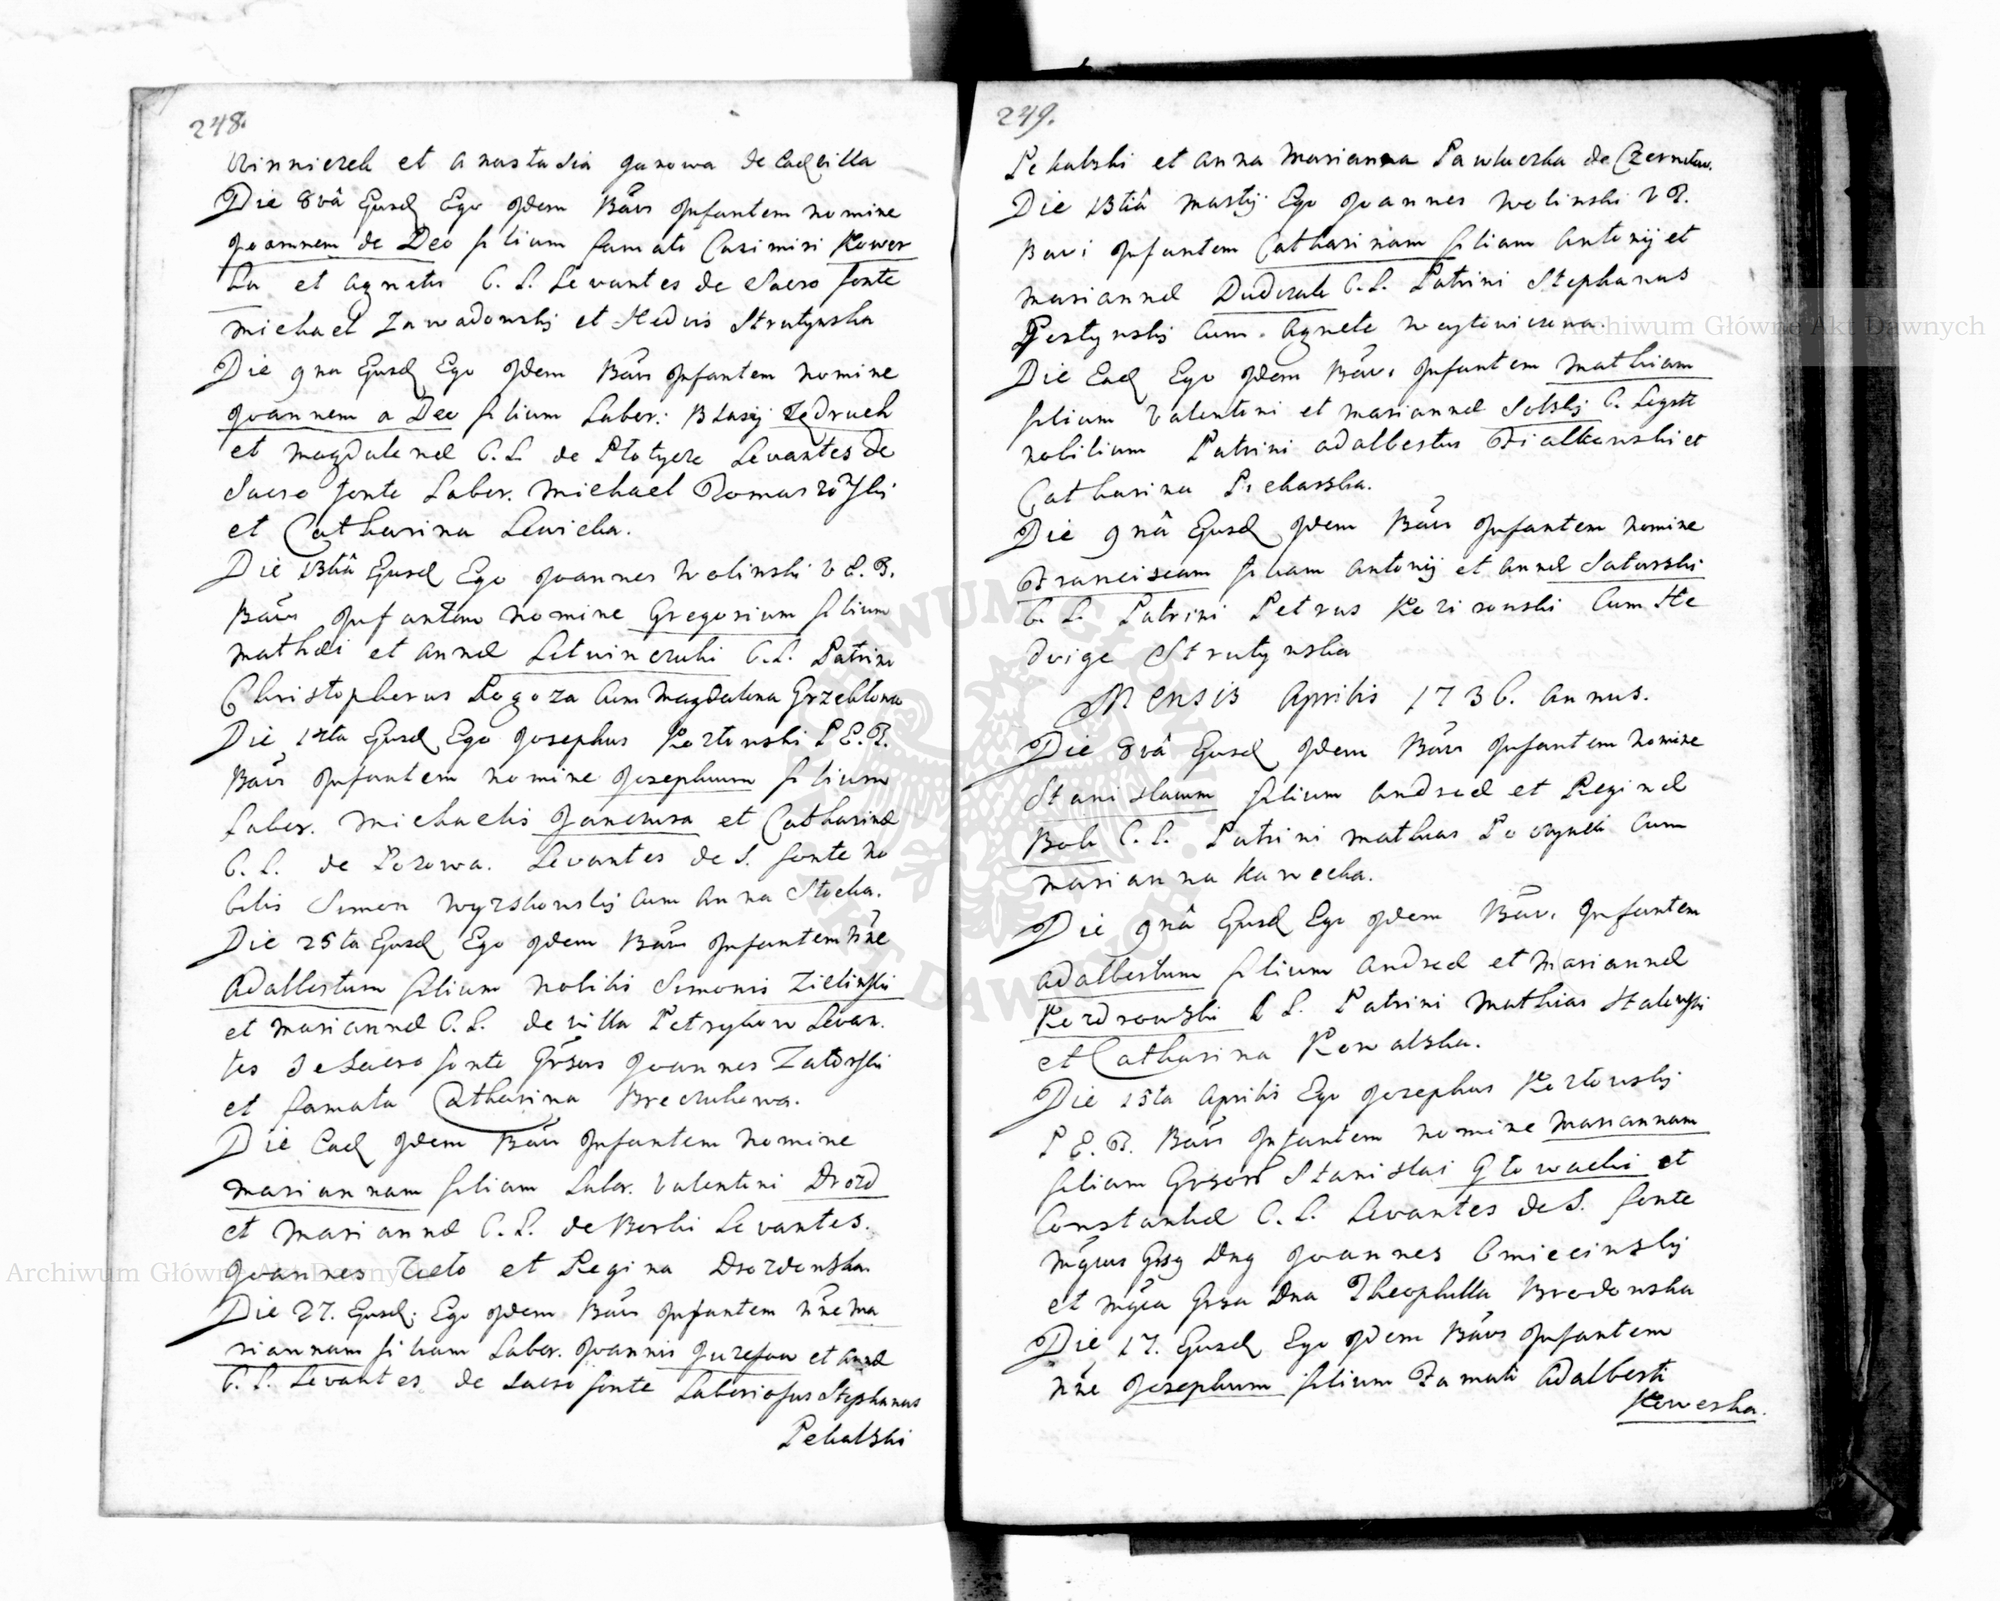 248.
Winniczek et Anastasia Janowa de Eadvilla
Die 8vâ Ejusd Ego Idem Bãvi Infantem nomine
Joannem de Deo filium famati Casimiri Kower
ka et Agnetis C. L. Levantes de Sacro fonte
Michael Zawadowskj et Hedvis Strutynska
Die 9na Ejusd Ego Idem Bãvi Infantem nomine
Joannem a Deo filium Labor: Blasij
et Magdalenæ C. L. de Płotycze Levantes de
Sacro fonte Labor. Michael
et Catharina Lewicka.
Die 13tiâ Ejusd Ego Joannes Wolinski V E. B.
Bãvi Infantem nomine Gregorium filium
Mathæi et Annæ Litwinczuki C. L. Patrini
Christopherus Pogoza Cum Magdalena
Die Ejusd Ego Josephus Koztowski P E. B.
Bãvi Infantem nomine Josephum filium
Labor. Michaelis Janczura et Catharinæ
C. L. de Pozowa. Levantes de S. fonte No
bilis Simon Wyrzkowskj cum Anna Stocka.
Die 25ta Ejusd Ego Idem Bãvi Infantem n̄ne
Adalbertum filium Nobilis Simonis Zielinski
et Mariannæ C. L. de villa Petrykow Levan.
tes de Sacro fonte Gr̄sus Joannes Zatorski
et famata Catharina Breczukowa.
Die Ead Idem Bãvi Infantem Nomine
Mariannam filiam Labor. Valentini Drozd
et Mariannæ C. L. de Borki Levantes.
Joannes et Regina Drozdowska.
Die 27. Ejusd: Ego Idem Bãvi Infantem n̄ne Ma
riannam filiam Labor. Joannis et Annæ
C. L. Levantes de Sacro fonte Laboriosus Stephanus
Pekalski
249.
Pekalski et Anna Marianna Pawluczka de
Die 13tiâ Martij Ego Joannes Wolinski V B.
Bavi Infantem Catharinam filiam Antonij et
Mariannæ C. L. Patrini Stephanus
Pestynskj Cum Agnete
Die Ead Ego Idem Bãvi Infantem Mathiam
filium Valentini et Mariannæ Solskj C. Legit
nobilium Patrini Adalbertus Fialkowski et
Catharina Piekarska.
Die 9nâ Ejusd Idem Bãvi Infantem nomine
Franciscam filiam Antonij et Annæ
C. L. Patrini Petrus Cum He
dvige Strutynska
Mensis Aprilis 1736. Annus.
Die 8vâ Ejusd Idem Bãvi Infantem Nomine
Stanislaum filium Andreæ et Reginæ
Bok C. L. Patrini Mathias Cum
Marianna Kawecka.
Die 9nâ Ejusd Ego Idem Bãvi Infantem
Adalbertum filium Andreæ et Mariannæ
C L. Patrini Mathias
et Catharina Kowalska.
Die 15ta Aprilis Ego Josephus Koztowskj
P E. B. Bãvi Infantem nomine Mariannam
filiam Stanislai Głowacki et
Constantiæ C. L. Levantes de S. fonte
Dnq Joannes
et Dna Theophilla Brodowska
Die 17. Ejusd Ego Idem Bãvi Infantem
n̄ne Josephum filium Famati Adalberti
Kowerka.
Archiwum Główne Akt Dawnych
Archiwum Główne Akt Dawnych